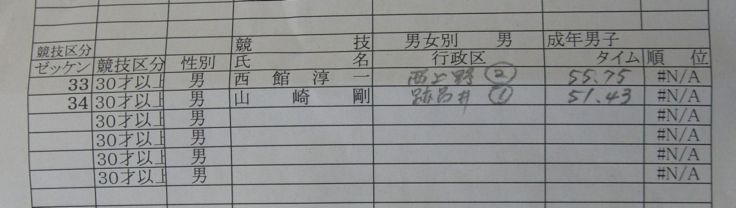 競技 男女別 男 成年男子
競技区分
ゼッケン 競技区分 性別 氏名 行政区 タイム 順位
33 30才以上 男 西館淳一 西上野 ② 55.75 #N/A
34 30才以上 男 山崎剛 跡呂井 ① 51.43 #N/A
30才以上 男 #N/A
30才以上 男 #N/A
30才以上 男 #N/A
30才以上 男 #N/A